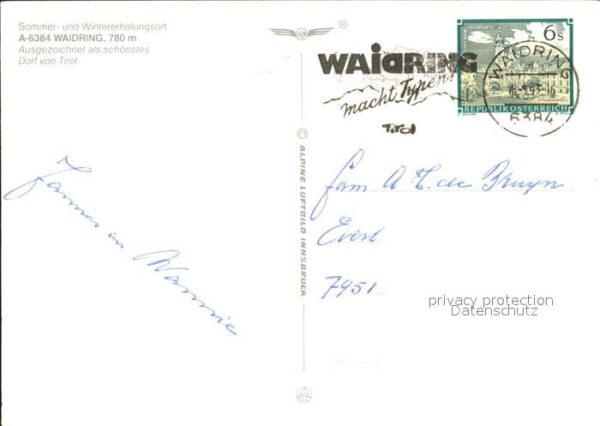 Sommer- und Wintererholungsort
A-6384 WAIDRING, 780 m
Ausgezeichnet als schönstes
Dorf von Tirol
®
WAidRING
macht Typen!
Tirol
6 S
REPUBLIK ÖSTERREICH
WAIDRING
6384
© ALPINE LUFTBILD INNSBRUCK
Fam A. C. de Bruyn
7951
privacy protection
Datenschutz
Jannes en Wannie